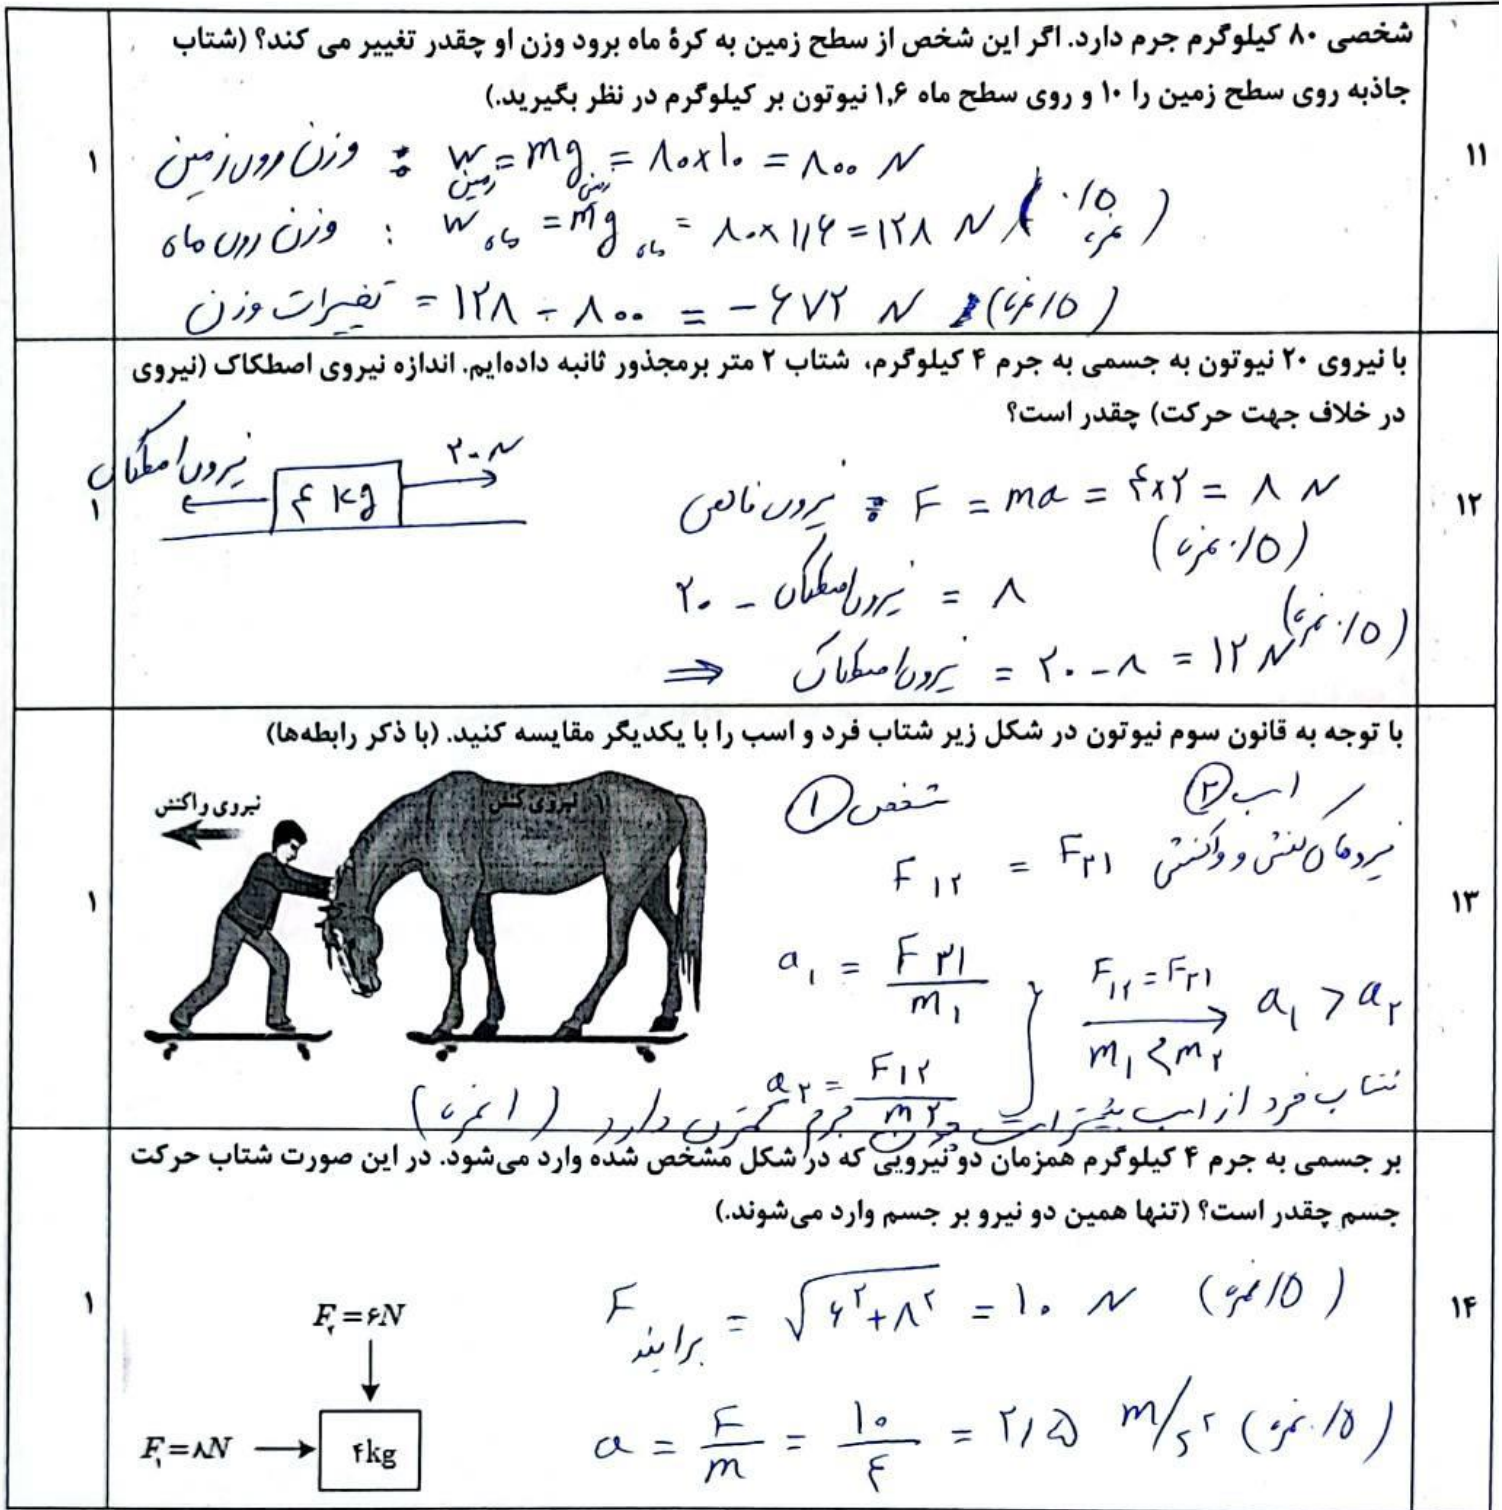 ۱۱
شخصی ۸۰ کیلوگرم جرم دارد. اگر این شخص از سطح زمین به کرهٔ ماه برود وزن او چقدر تغییر می کند؟ (شتاب
جاذبه روی سطح زمین را ۱۰ و روی سطح ماه ۱,۶ نیوتون بر کیلوگرم در نظر بگیرید.)
۱
وزن روی زمین : W زمین = mg زمین = ۸۰×۱۰ = ۸۰۰ N
وزن روی ماه : W ماه = mg ماه = ۸۰×۱/۶ = ۱۲۸ N (۰/۵ نمره)
تغییرات وزن = ۱۲۸ - ۸۰۰ = -۶۷۲ N (۰/۵ نمره)
۱۲
با نیروی ۲۰ نیوتون به جسمی به جرم ۴ کیلوگرم، شتاب ۲ متر برمجذور ثانیه داده‌ایم. اندازه نیروی اصطکاک (نیروی
در خلاف جهت حرکت) چقدر است؟
۱
نیروی اصطکاک
۴ kg
۲۰ N
نیروی خالص : F = ma = ۴×۲ = ۸ N
(۰/۵ نمره)
۲۰ - نیروی اصطکاک = ۸
⇒ نیروی اصطکاک = ۲۰ - ۸ = ۱۲ N (۰/۵ نمره)
۱۳
با توجه به قانون سوم نیوتون در شکل زیر شتاب فرد و اسب را با یکدیگر مقایسه کنید. (با ذکر رابطه‌ها)
۱
نیروی واکنش
نیروی کنش
شخص ①
اسب ②
نیروهای کنش و واکنش F۱۲ = F۲۱
a۱ = F۲۱ / m۱
a۲ = F۱۲ / m۲
F۱۲ = F۲۱
m۱ < m۲
a۱ > a۲
شتاب فرد از اسب بیشتر است چون جرم کمتری دارد (۱ نمره)
۱۴
بر جسمی به جرم ۴ کیلوگرم همزمان دو نیرویی که در شکل مشخص شده وارد می‌شود. در این صورت شتاب حرکت
جسم چقدر است؟ (تنها همین دو نیرو بر جسم وارد می‌شوند.)
۱
F۲=۶N
F۱=۸N
۴kg
F برایند = √۶²+۸² = ۱۰ N (۰/۵ نمره)
a = F/m = ۱۰/۴ = ۲/۵ m/s² (۰/۵ نمره)